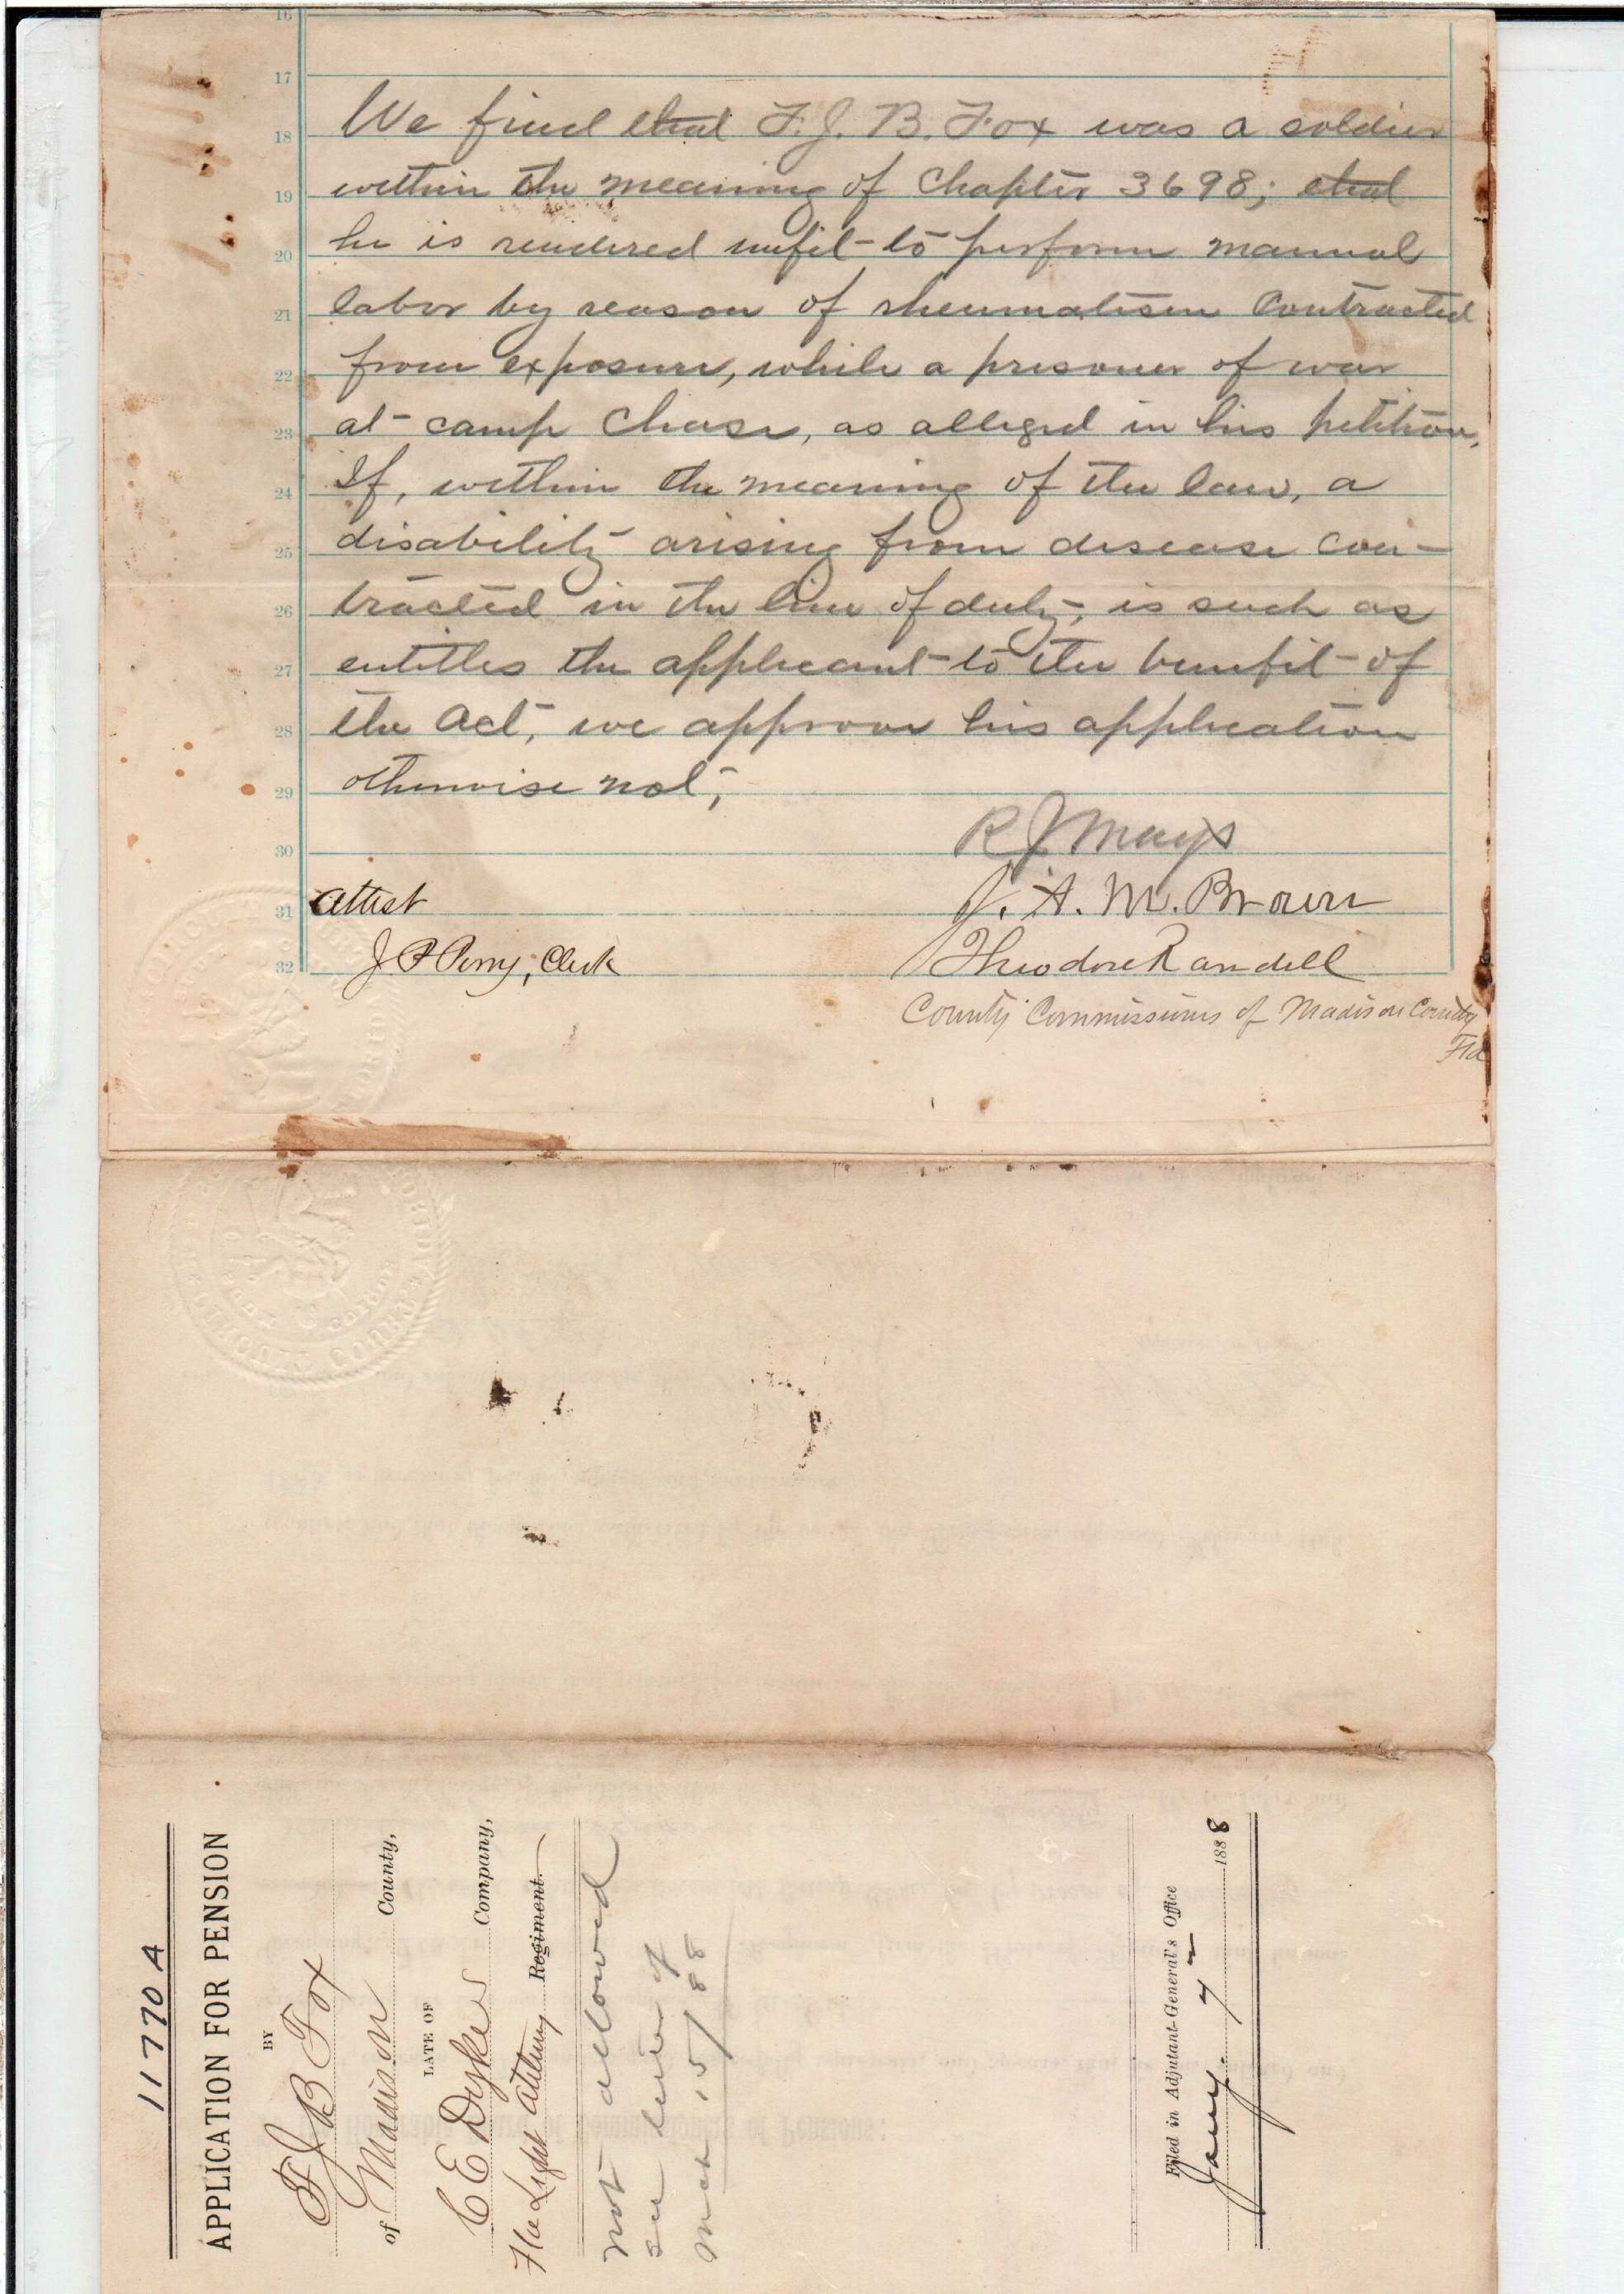 16
17
18 We find that F. J. B. Fox was a soldier
19 within the meaning of Chapter 3698; that
20 he is rendered unfit to perform manual
21 labor by reason of rheumatism Contracted
22 from exposure, while a prisoner of war
23 at camp Chase, as alleged in his petition.
24 If, within the meaning of the law, a
25 disability arising from disease con-
26 tracted in the line of duty, is such as
27 entitles the applicant to the benefit of
28 the Act, we approve his application
29 otherwise not,
30 R J Mays
31 Attest J. A. M. Brown
32 J P Perry, Clerk Theodore Randell
County Commissioners of Madison County
Fla
11770 A
APPLICATION FOR PENSION
BY
F J B Fox
of Madison County,
LATE OF
C E Dykes Company,
Fla Light Artillery Regiment.
not allowed
see letter of
Mch 15/88
Filed in Adjutant-General's Office
Jany. 7 1888